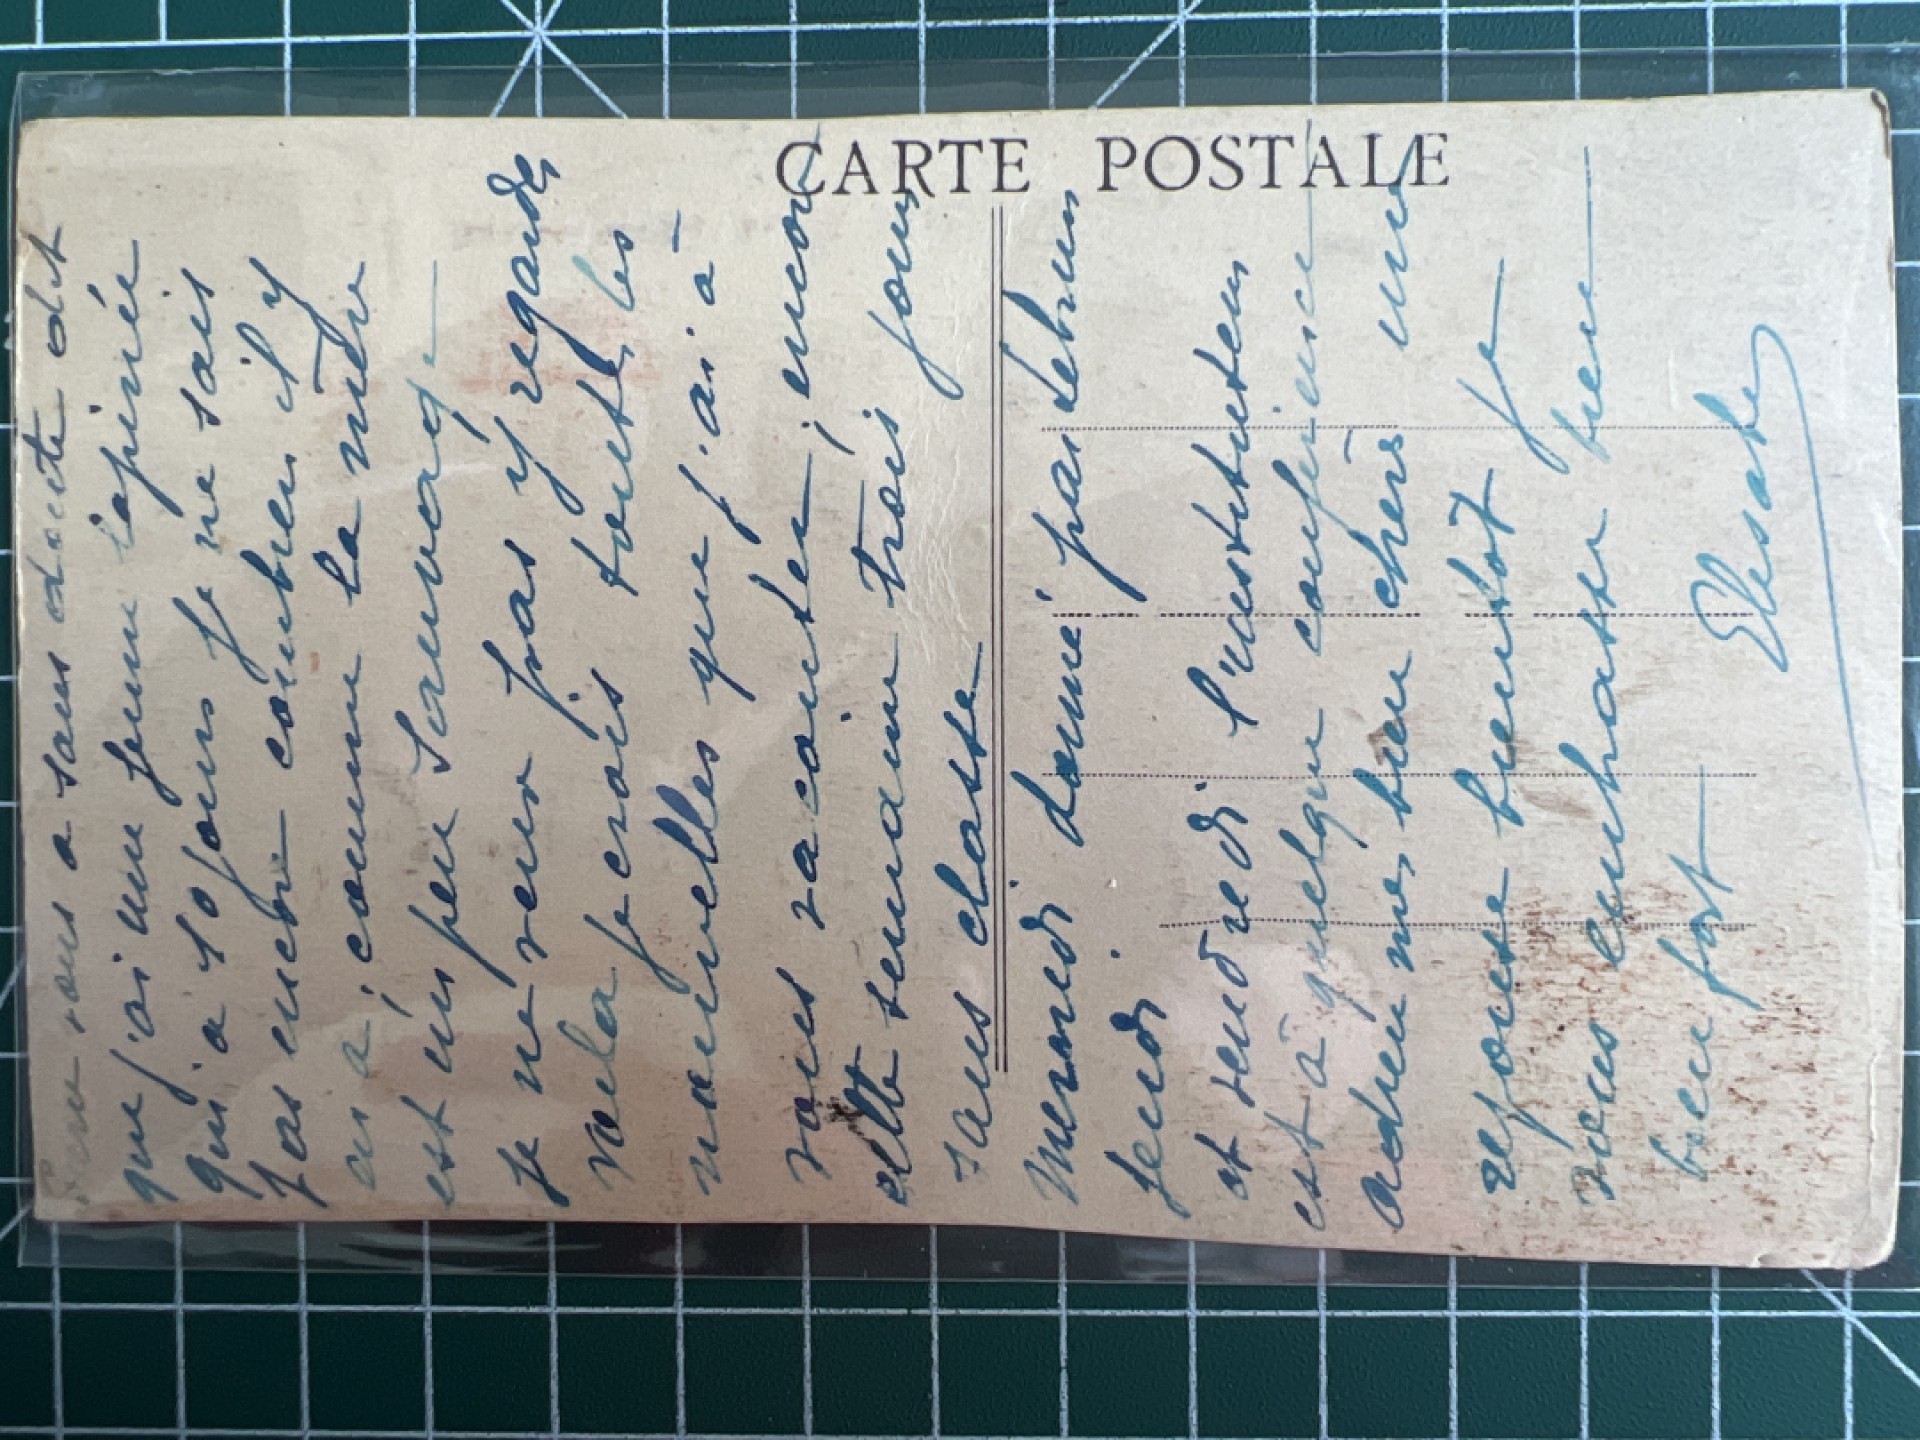 CARTE POSTALE
vous a sans doute dit
que j'ai une femme lapinée
qui a 10 jours je ne sais
pas encore combien il y
en a, comme la mère
est un peu sauvage
je ne veux pas y regarder
voila je crois toutes les
nouvelles que j'ai à
vous raconter, encore
cette semaine trois jours
sans classe
Mercredi donné par Lebrun
jeudi
et vendredi l'instituteur
est à quelque conférence
adieu mes bien chers une
réponse bientot je
vous embrasse bien
bien fort
Elisabe